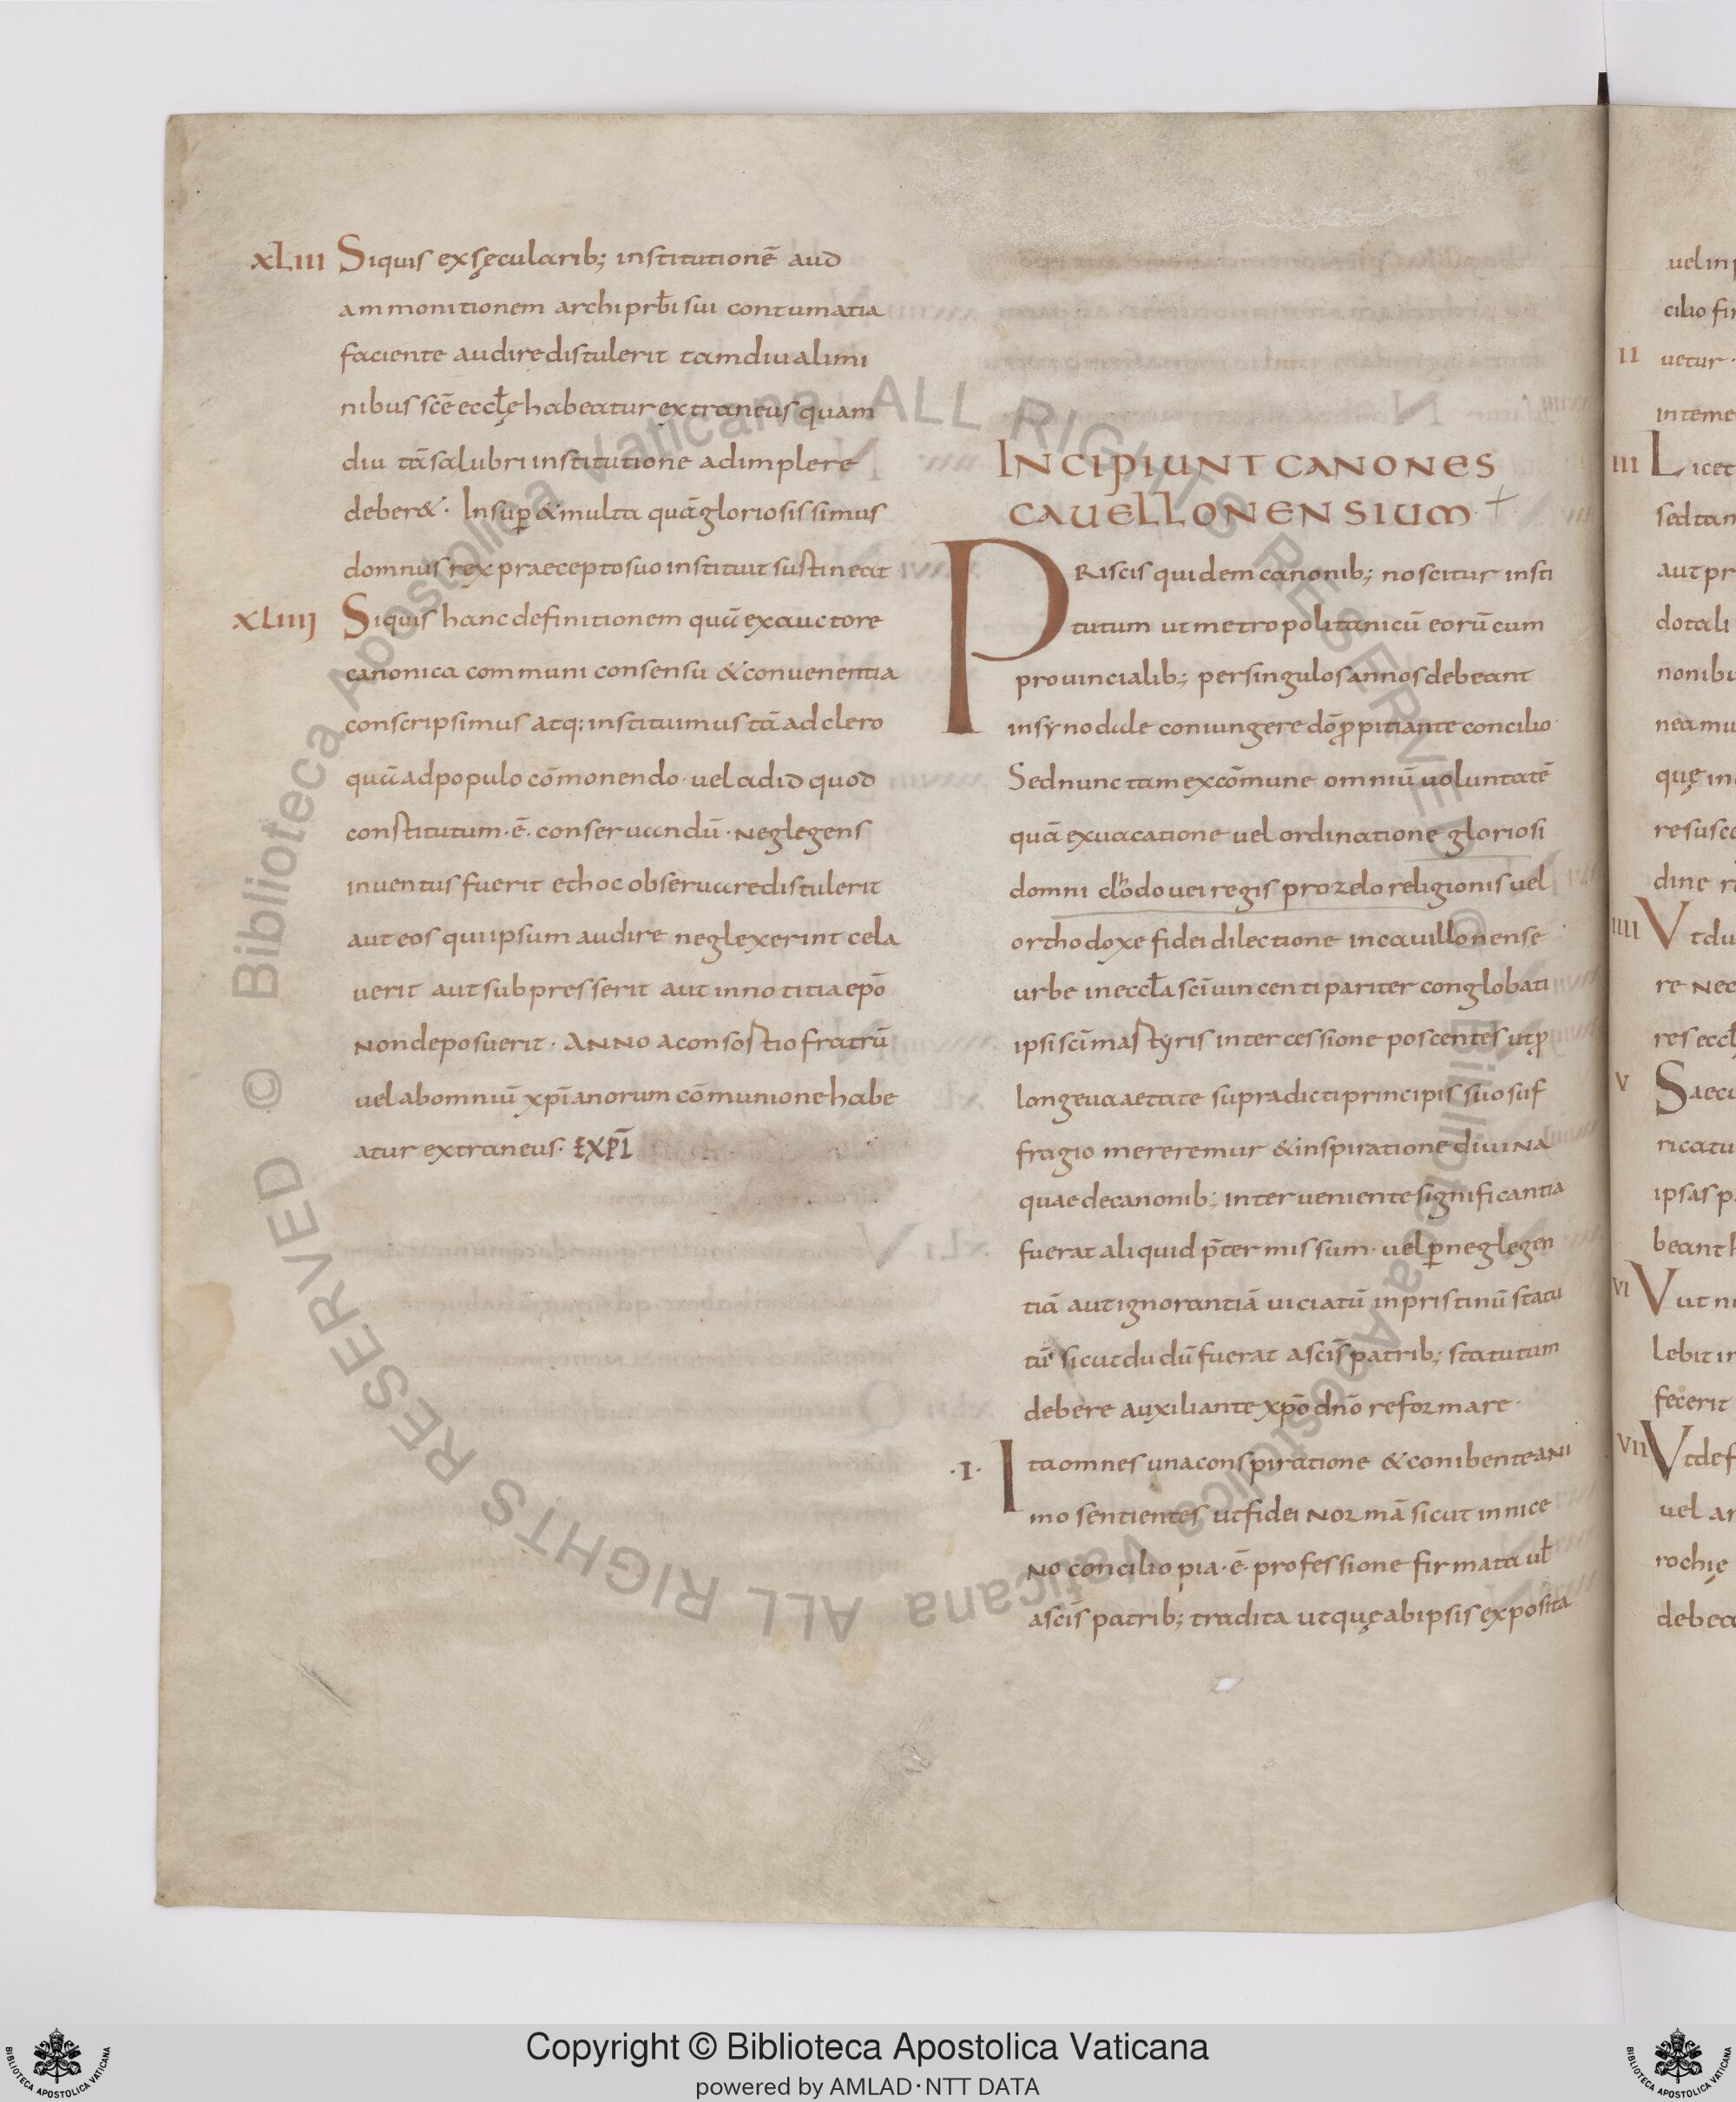 xLIII Siquis exsęcularib; institutionē aud
ammonitionem archiprƀi sui contumatia
faciente audiredistulerit tamdiualimi
nibus scē eccłęhabeatur extraneus quam
diu tā salubri institutione adimplere
deber&. Insup̱ &multa quā gloriosissimus
domnus rex praecepto suo instituit sustineat
xLIIII Siquis hanc definitionem quā exauctore
canonica communi consensu &conuenentia
conscripsimus atq; instituimus tā ad clero
quā ad populo cōmonendo. uel ad id quod
constitutum .ē. conseruandū. Neglegens
inuentus fuerit et hoc obseruare distulerit
aut eos qui ipsum audire neglexerint cela
uerit aut subpresserit aut in notitia epō
Non deposuerit. ANNO a consostio fratrū
uel ab omniū xp̄ianorum cōmunione habe
atur extraneus. EXPL̄
INCIPIUNT CANONES
CAUELLONENSIUM
PRiscis quidem canonib; noscitur insti
tutum ut metropolitanicū eorū cum
prouincialib; per singulos annos debeant
in synodale coniungere dō p̱pitiante concilio
Sed nunc tam ex cōmune omniū uoluntatē
quā exuacatione uel ordinatione gloriosi
domni clhodouei regis pro zelo religionis uel
orthodoxe fidei dilectione in cauillonense
urbe in eccła scī uincenti pariter conglobati
ipsi scī mastyris intercessione poscentes ut p̱
longeua aetate supradicti principis suo suf
fragio mereremur &inspiratione diuiNa
quae de canonib; interueniente significantia
fuerat aliquid p̄termissum. uel p̱ neglegen
tiā aut ignorantiā uiciatū in pristinū statu
tū sicut dudū fuerat a scīs patrib; statutum
debere auxiliante xp̄o dn̄o reformare.
.I. Ita omnes una conspiratione &conibente aNi
mo sentientes ut fidei Normā sicut in nice
No concilio pia .ē. professione firmata uł
a scīs patrib; tradita utquę ab ipsis exposita
uel in
cilio
II uetur
III Licet
aut
dotali
dine
IIII Vtdu
re Nec
V Saecu
VI Vut
lebit
fecerit
VII Vtdef
uel
rochię
Copyright © Biblioteca Apostolica Vaticana
powered by AMLAD·NTT DATA
BIBLIOTECA APOSTOLICA VATICANA
BIBLIOTECA APOSTOLICA VATICANA
© Biblioteca Apostolica Vaticana ALL RIGHTS RESERVED © Biblioteca Apostolica Vaticana ALL RIGHTS RESERVED